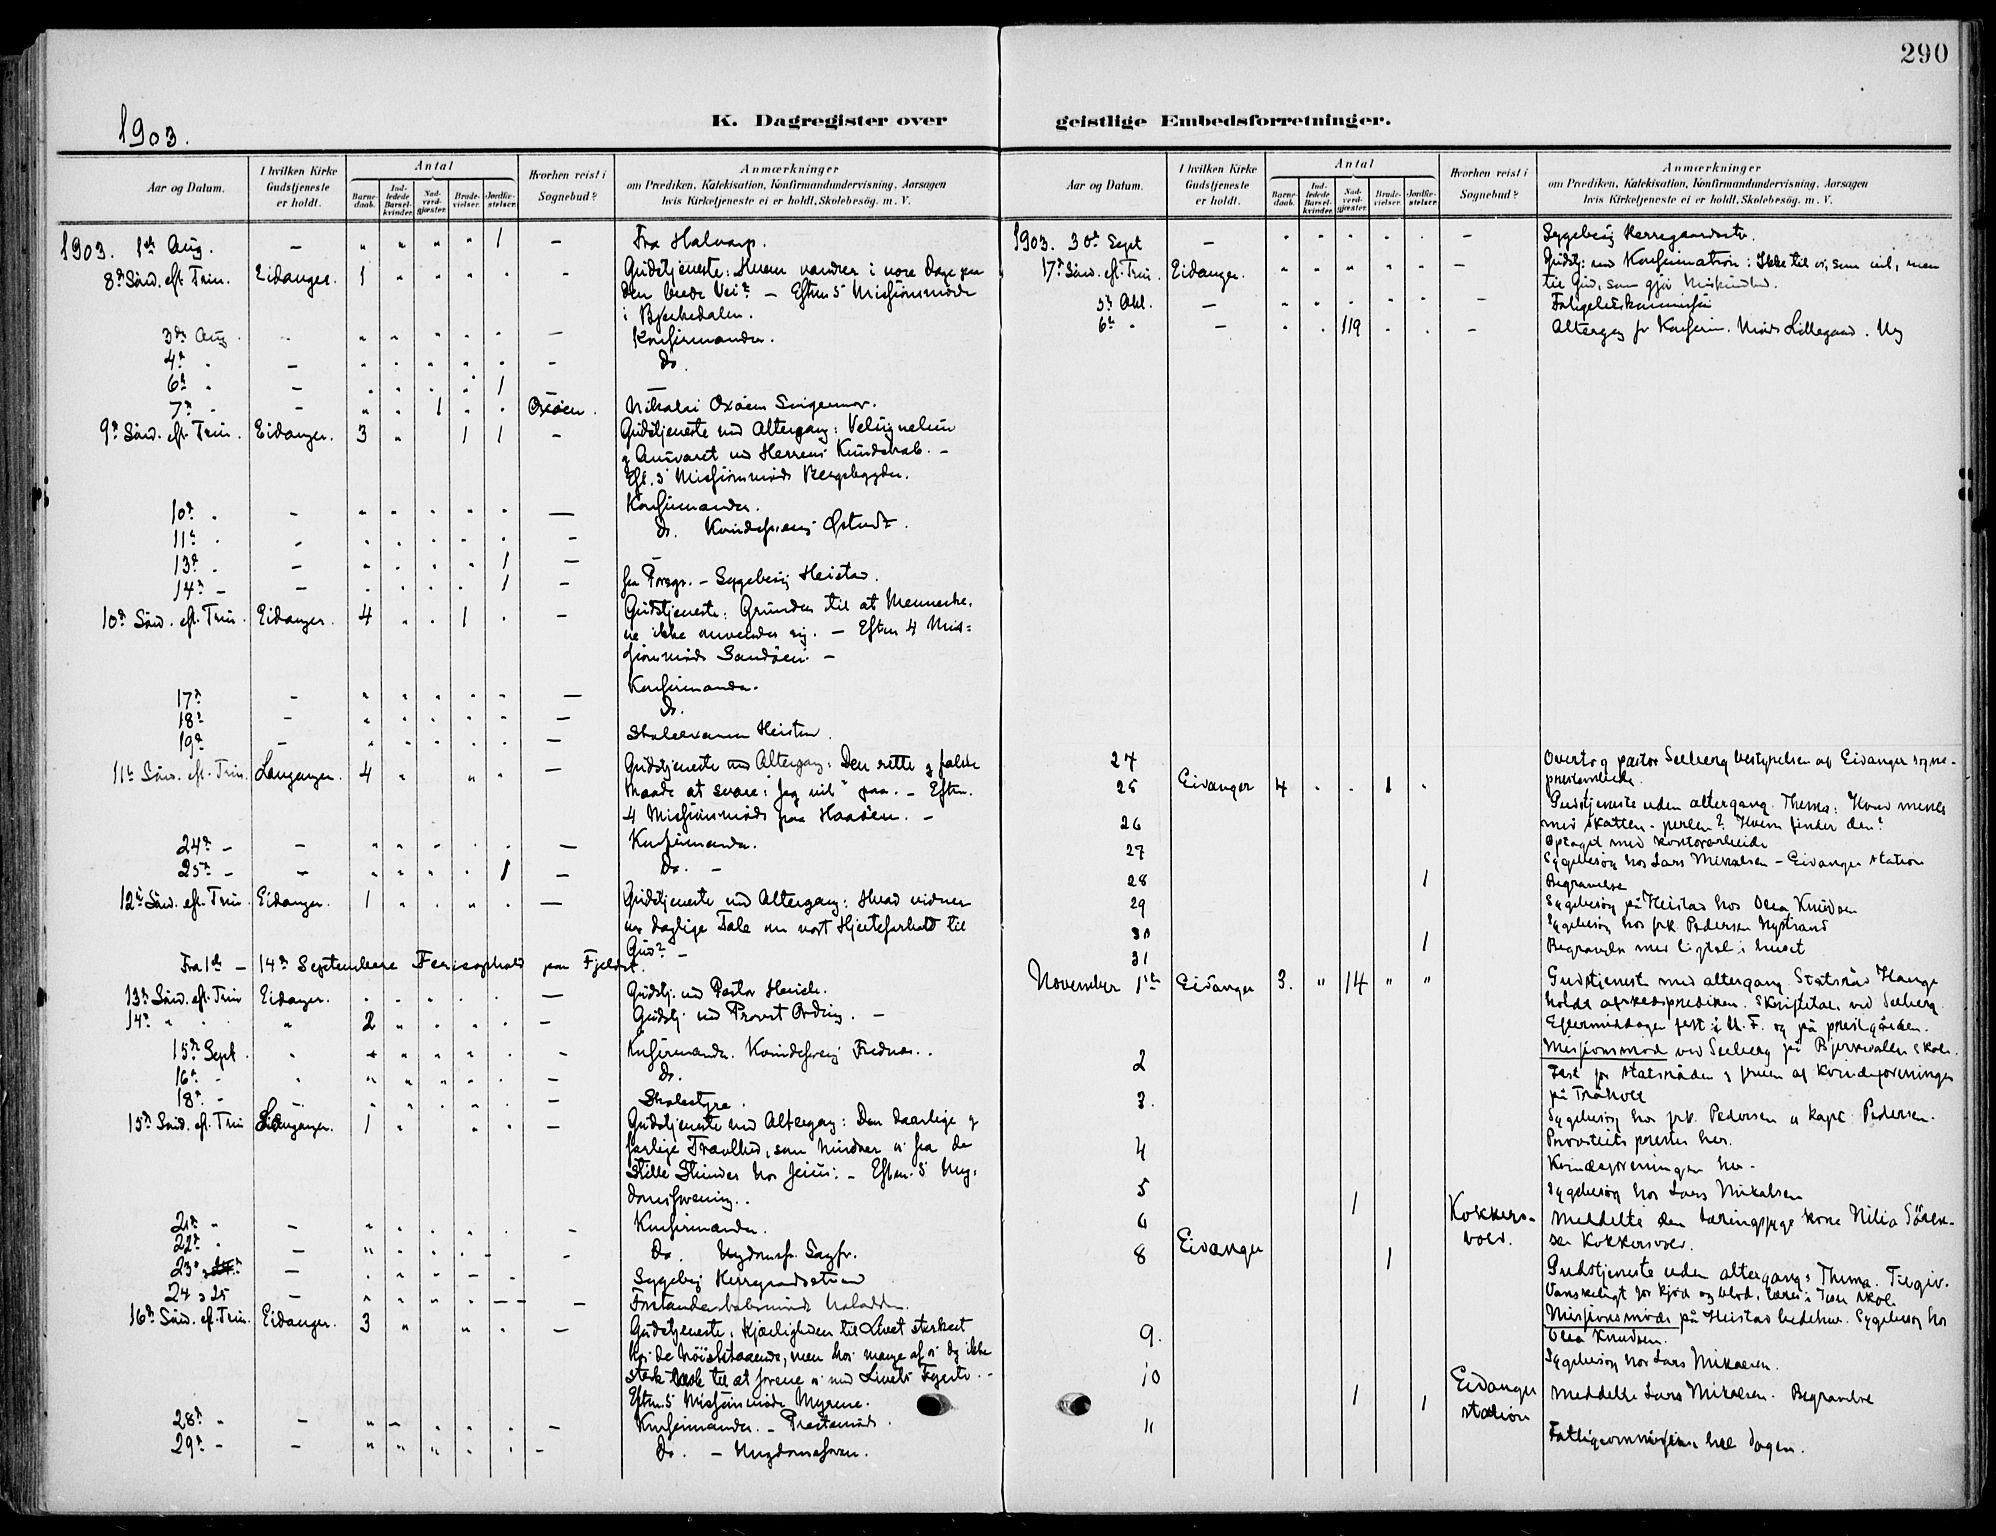 290
1903.
K. Dagregister over geistlige Embedsforretninger.
Aar og Datum.
I hvilken Kirke Gudstjeneste er holdt.
Antal
Barne-daab.
Ind-ledede Barsel-kvinder.
Nad-verd-gjæster.
Brude-vielser.
Jordfæ-stelser.
Hvorhen reist i Sognebud?
Anmærkninger
om Prædiken, Katekisation, Konfirmandundervisning, Aarsagen
hvis Kirketjeneste ei er holdt, Skolebesög. m. V.
1903. 1ste Aug. — " " " " 1 — Fra
8de Sönd. eft. Trin. Eidanger. 1 " " " " — Gudstjeneste: Hvem vandrer i vore Dage paa
den brede Vei? — Efterm 5 Missionsmöde
i Bjerkedalen.
3die Aug. " " " " " — Konfirmander.
4de " — " " " " " — Do.
6te " — " " " " 1 —
7de " — " " 1 " " Oxöen. Nikolai Oxöen
9de Sönd. eft. Trin. Eidanger. 3 " 1 1 — Gudstjeneste med Altergang: Velsignelsen
og Ansvaret ved Herrens Kundskab. —
Eft. 5 Missionsmöde Bergsbygden.
10de " — " " " " " — Konfirmander.
11te " — " " " " " — Do. Kvindeforening
13de " — " " " " 1 —
14de — — " " " " 1 — fra Porsgr. — Sygebesög Heistad.
10de Sönd. eft. Trin. Eidanger. 4 " " 1 " — Gudstjeneste: Grunden til at Menneske-
ne ikke omvender sig. — Efterm 4 Mis-
sionsmöde Sandöen. —
17de — " " " " " — Konfirmander.
18de — " " " " " — Do.
19de — " " " " " — Heistad.
11te Sönd. eft. Trin. Langangen. 4 " " " — Gudstjeneste med Altergang: Den rette og falske
Maade at svare: "Jeg vil" paa. — Efterm.
4 Missionsmöde paa Haaöen. —
24de — — " " " " " — Konfirmander.
25de — — " " " " 1 — Do. —
12te Sönd. eft. Trin. Eidanger. 1 " " " " — Gudstjeneste med Altergang: Hvad vidner
vor daglige Tale om vort Hjerteforhold til
Gud? —
Fra 1ste — 14de September Ferieophold paa Fjeldet.
13de Sönd. eft. Trin Eidanger. " " " " " — Gudstj. ved Pastor
14de " " " " 2 " " " " — Gudstj. ved Provst —
15de Sept. " " " " " " — Konfirmander. Kvindeforening
16de " " " " " " — Do.
18de — — " " " " " — Skolestyre.
15de Sönd. eft. Trin 1 " " " — Gudstjeneste med Altergang: Den daarlige og
farlige Travlhed, som hindrer os fra de
stille Stunder hos Jesus: — Efterm. 5 Ung-
domsforening.
21de " — " " " " " — Konfirmander.
22de " — " " " " — — Do.
23de — " " " — " Sygebesög
24 & 25 — " " " " — — —
16de Sönd. eft. Trin. Eidanger. 3 " " " — Gudstjeneste: Kjærligheden til Livet stærkest
hos de höistaaende, men hos mange af os dog ikke
stærk nok til at forene os med Livets Fyrste. —
Efterm 5 Missionsmöde Myrene.
28de " — " — " " " — Konfirmander. — Præstemöde.
29de " — " " " " " — Do. — Ungdomsforen.
1903. 30te Sept — " " " " " — Sygebesög
17de Sönd. eft. Trin. Eidanger. " " " " " — Gudstj. med Konfirmation: Ikke til os, som vil, men
til Gud, som gjör Miskundhed.
5te Okt. — " " " " " — Fattigkommission
6te " — " " 119 " " — Altergang for Konfirm. Möde Lillegaard.
24 Overtog pastor Seeberg bestyrelsen af Eidanger sogne-
presteembede.
25 Eidanger 4 " " 1 " Gudstjeneste uden altergang. Thema: Hvad menes
med skatten - perlen? Hvem finder den?
26 Optaget med kontorarbeide
27 Sygebesög hos Lars Mikkelsen — Eidanger station
28 1 Begravelse
29 Sygebesög på Heistad hos Olea Knudsen
30 Sygebesög hos frk. Pedersen Nystrand
31 1 Begravelse med ligtale i huset
November 1ste Eidanger 3. " 14 " " Gudstjeneste med altergang. Statsråd Hauge
holdt afskedsprediken. Skriftetale ved Seeberg.
Eftermiddagen fest i U. F. og på prestgården.
Missionsmöde ved Seeberg på Bjerkedalen skole.
2 Fest for statsråden og fruen af kvindeforeningen
på
3. Sygebesög hos frk. Pedersen og kapt. Pedersen.
Provstiets prester her.
4 Kvindeforeningen her.
5 Sygebesög hos Lars Mikalsen
6 1 Kokkers-
vold. Meddelte den tæringssyge kone
Kokkersvold.
8 Eidanger 1 Gudstjeneste uden altergang: Thema. Tilgiv.
Vanskeligt for kjöd og blod,
Missionsmöde på Heistad bedehus. Sygebesög hos
Olea Knudsen.
9. Sygebesög hos Lars Mikalsen.
10 1 1 Eidanger
station Meddelte Lars Mikalsen. Begravelse
11 Fattigcommission hele dagen.